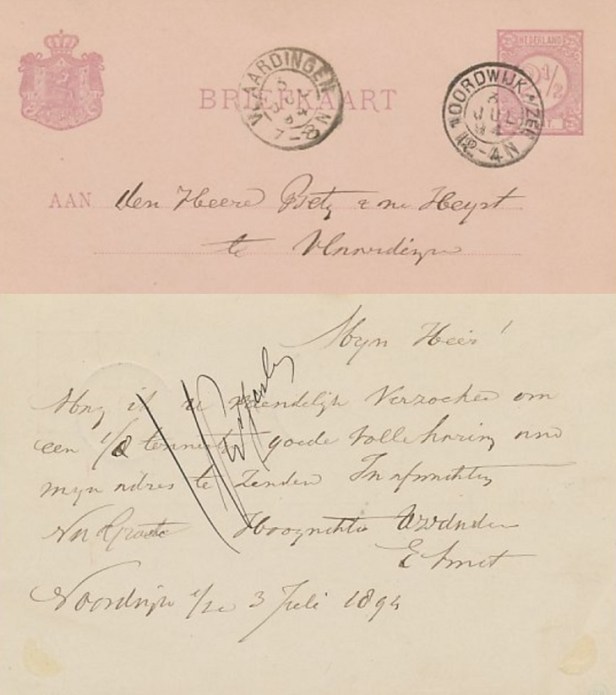 NEDERLAND
VLAARDINGEN
3 JUL 94
7-8 N
BRIEFKAART
NOORDWIJK A/ZEE
3 JUL 94
12-4N
AAN den Heere Betz & v
te Vlaardingen
Myn Heer!
Mag ik u vriendelijk Verzoeken om
een 1/8 tonnetje goede volleharing aan
mijn adres te Zenden Inafwachting
Na Groete Hoogachtend
E Smit
Noordwijk a/zee 3 Juli 1894